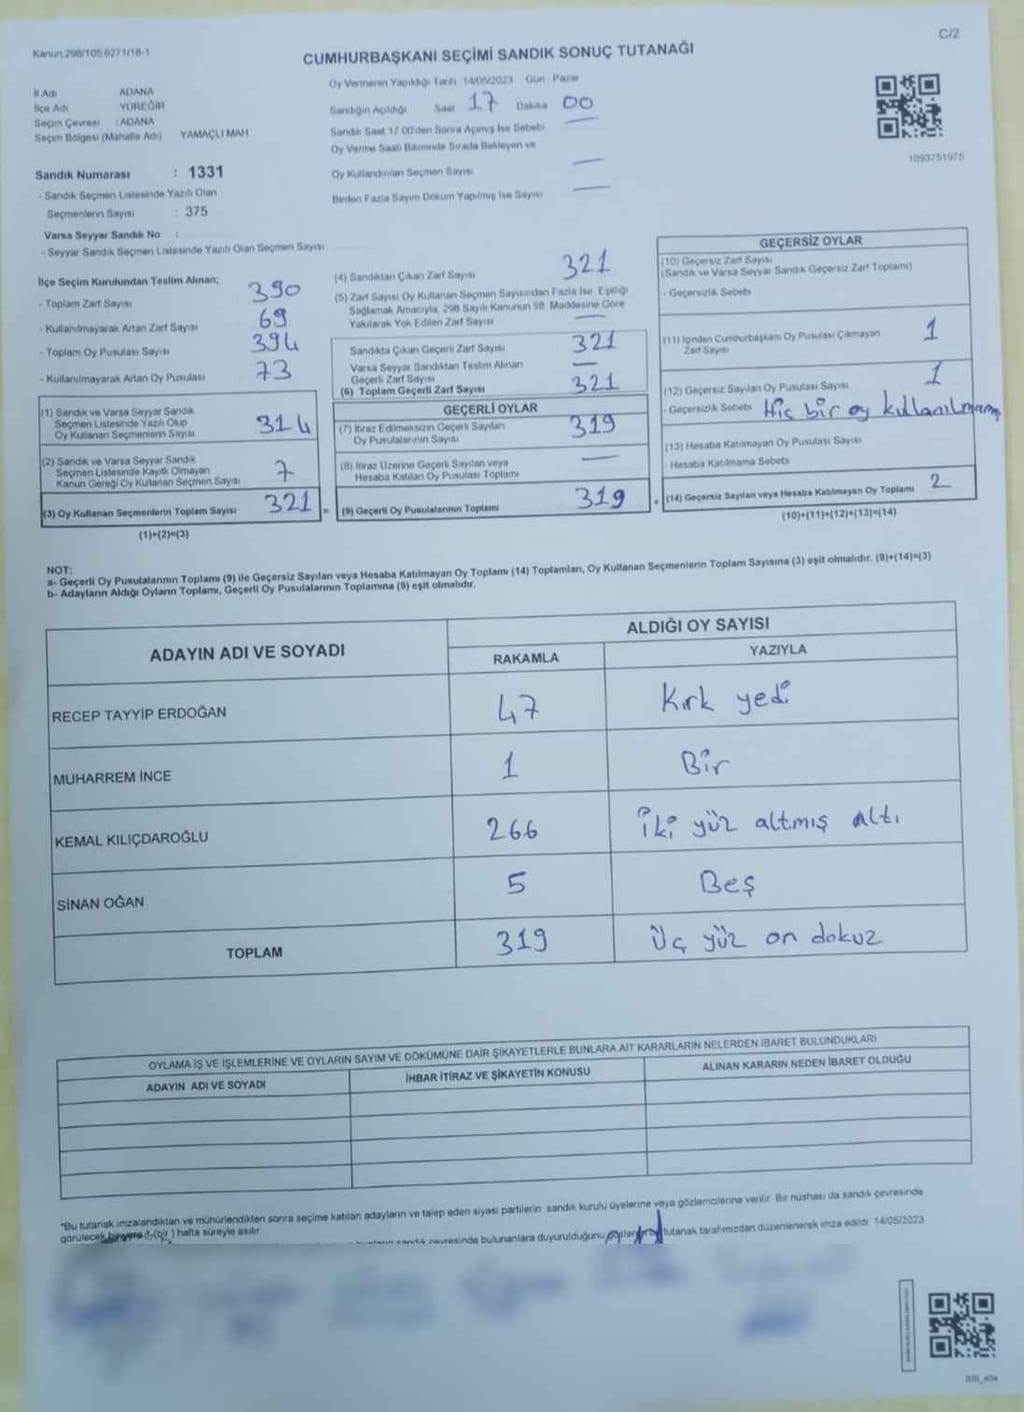 Kanun:298/105:6271/18-1
C/2
CUMHURBAŞKANI SEÇİMİ SANDIK SONUÇ TUTANAĞI
İl Adı ADANA
İlçe Adı YÜREĞİR
Seçim Çevresi : ADANA
Seçim Bölgesi (Mahalle Adı) YAMAÇLI MAH.
Oy Vermenin Yapıldığı Tarih 14/05/2023 Gün Pazar
Sandığın Açıldığı Saat 17 Dakika 00
Sandık Saat 17.00'den Sonra Açılmış İse Sebebi
Oy Verme Saati Bitiminde Sırada Bekleyen ve
Oy Kullandırılan Seçmen Sayısı —
Birden Fazla Sayım Döküm Yapılmış İse Sayısı —
1093751975
Sandık Numarası : 1331
- Sandık Seçmen Listesinde Yazılı Olan
Seçmenlerin Sayısı : 375
Varsa Seyyar Sandık No :
- Seyyar Sandık Seçmen Listesinde Yazılı Olan Seçmen Sayısı
İlçe Seçim Kurulundan Teslim Alınan;
- Toplam Zarf Sayısı 390
- Kullanılmayarak Artan Zarf Sayısı 69
- Toplam Oy Pusulası Sayısı 394
- Kullanılmayarak Artan Oy Pusulası 73
(1) Sandık ve Varsa Seyyar Sandık
Seçmen Listesinde Yazılı Olup
Oy Kullanan Seçmenlerin Sayısı 314
(2) Sandık ve Varsa Seyyar Sandık
Seçmen Listesinde Kayıtlı Olmayan
Kanun Gereği Oy Kullanan Seçmen Sayısı 7
(3) Oy Kullanan Seçmenlerin Toplam Sayısı 321
(1)+(2)=(3)
(4) Sandıktan Çıkan Zarf Sayısı 321
(5) Zarf Sayısı Oy Kullanan Seçmen Sayısından Fazla İse, Eşitliği
Sağlamak Amacıyla, 298 Sayılı Kanunun 98. Maddesine Göre
Yakılarak Yok Edilen Zarf Sayısı —
Sandıkta Çıkan Geçerli Zarf Sayısı 321
Varsa Seyyar Sandıktan Teslim Alınan
Geçerli Zarf Sayısı —
(6) Toplam Geçerli Zarf Sayısı 321
GEÇERLİ OYLAR
(7) İtiraz Edilmeksizin Geçerli Sayılan
Oy Pusulalarının Sayısı 319
(8) İtiraz Üzerine Geçerli Sayılan veya
Hesaba Katılan Oy Pusulası Toplamı —
= (9) Geçerli Oy Pusulalarının Toplamı 319
GEÇERSİZ OYLAR
(10) Geçersiz Zarf Sayısı
(Sandık ve Varsa Seyyar Sandık Geçersiz Zarf Toplamı)
- Geçersizlik Sebebi
(11) İçinden Cumhurbaşkanı Oy Pusulası Çıkmayan
Zarf Sayısı 1
(12) Geçersiz Sayılan Oy Pusulası Sayısı 1
- Geçersizlik Sebebi Hiç bir oy kullanılmamış
(13) Hesaba Katılmayan Oy Pusulası Sayısı
- Hesaba Katılmama Sebebi
+ (14) Geçersiz Sayılan veya Hesaba Katılmayan Oy Toplamı 2
(10)+(11)+(12)+(13)=(14)
NOT:
a- Geçerli Oy Pusulalarının Toplamı (9) ile Geçersiz Sayılan veya Hesaba Katılmayan Oy Toplamı (14) Toplamları, Oy Kullanan Seçmenlerin Toplam Sayısına (3) eşit olmalıdır. (9)+(14)=(3)
b- Adayların Aldığı Oyların Toplamı, Geçerli Oy Pusulalarının Toplamına (9) eşit olmalıdır.
ADAYIN ADI VE SOYADI ALDIĞI OY SAYISI
RAKAMLA YAZIYLA
RECEP TAYYİP ERDOĞAN 47 Kırk yedi
MUHARREM İNCE 1 Bir
KEMAL KILIÇDAROĞLU 266 İki yüz altmış altı
SİNAN OĞAN 5 Beş
TOPLAM 319 Üç yüz on dokuz
OYLAMA İŞ VE İŞLEMLERİNE VE OYLARIN SAYIM VE DÖKÜMÜNE DAİR ŞİKAYETLERLE BUNLARA AİT KARARLARIN NELERDEN İBARET BULUNDUKLARI
ADAYIN ADI VE SOYADI İHBAR İTİRAZ VE ŞİKAYETİN KONUSU ALINAN KARARIN NEDEN İBARET OLDUĞU
"Bu tutanak imzalandıktan ve mühürlendikten sonra seçime katılan adayların ve talep eden siyasi partilerin sandık kurulu üyelerine veya gözlemcilerine verilir. Bir nüshası da sandık çevresinde
görülecek bir yere 1 (bir) hafta süreyle asılır.
sandık çevresinde bulunanlara duyurulduğunu tutanak tarafımızdan düzenlenerek imza edildi. 14/05/2023